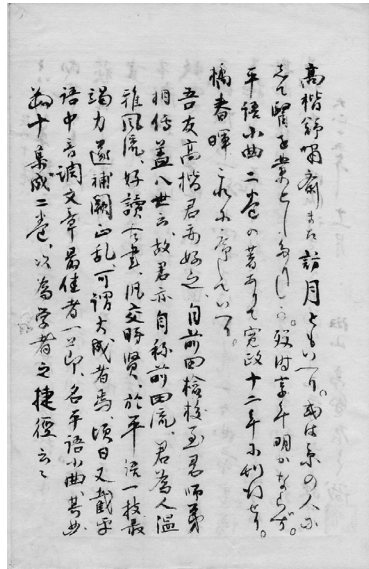 高楷號嘯斎また訪月ともいへり。或は京の人に
して醫を業としたりしが。歿時享年明かならず。
平語小曲二巻の著ありて寛政十二年に刊行せり。
橘春暉これに序していへり。
吾友高楷君亦好之、自前田檢校至君師弟
相傳蓋八世云、故君亦自称前田流、君為人温
雅風流、好讀書、凡交時賢、於平語一技最
竭力、遂補闕正乱、可謂大成者焉、頃日又截平
語中音調文章最佳者一二節、名平語小曲其曲
十集成二巻、以為学者之捷徑云々